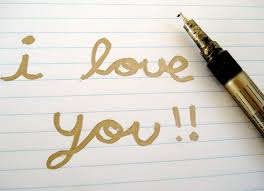 i love
you!!